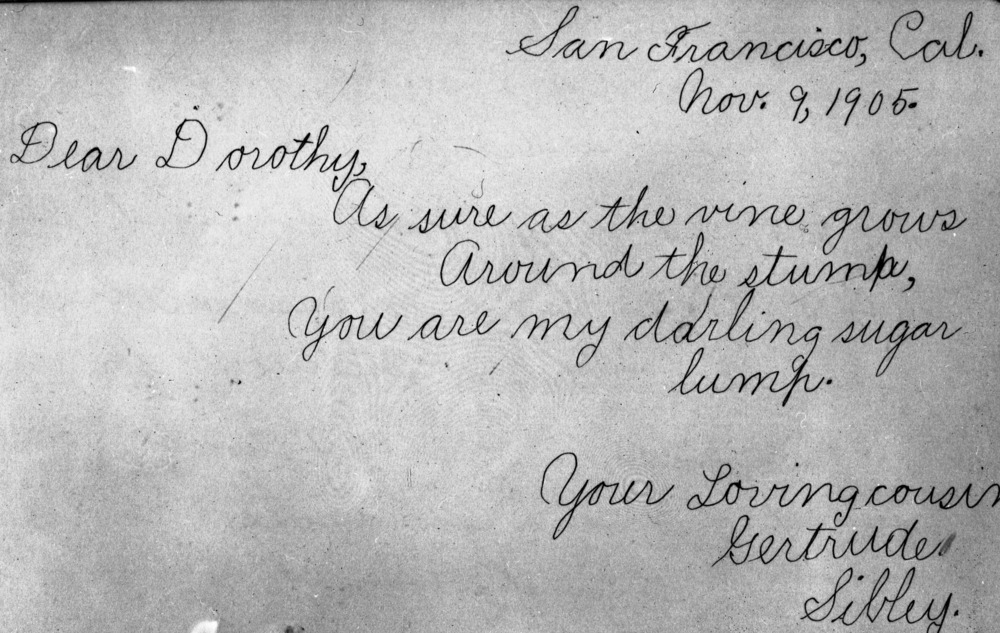 San Francisco, Cal.
Nov. 9, 1905.
Dear Dorothy,
As sure as the vine grows
Around the stump,
You are my darling sugar
lump.
Your Loving cousin
Gertrude
Sibley.